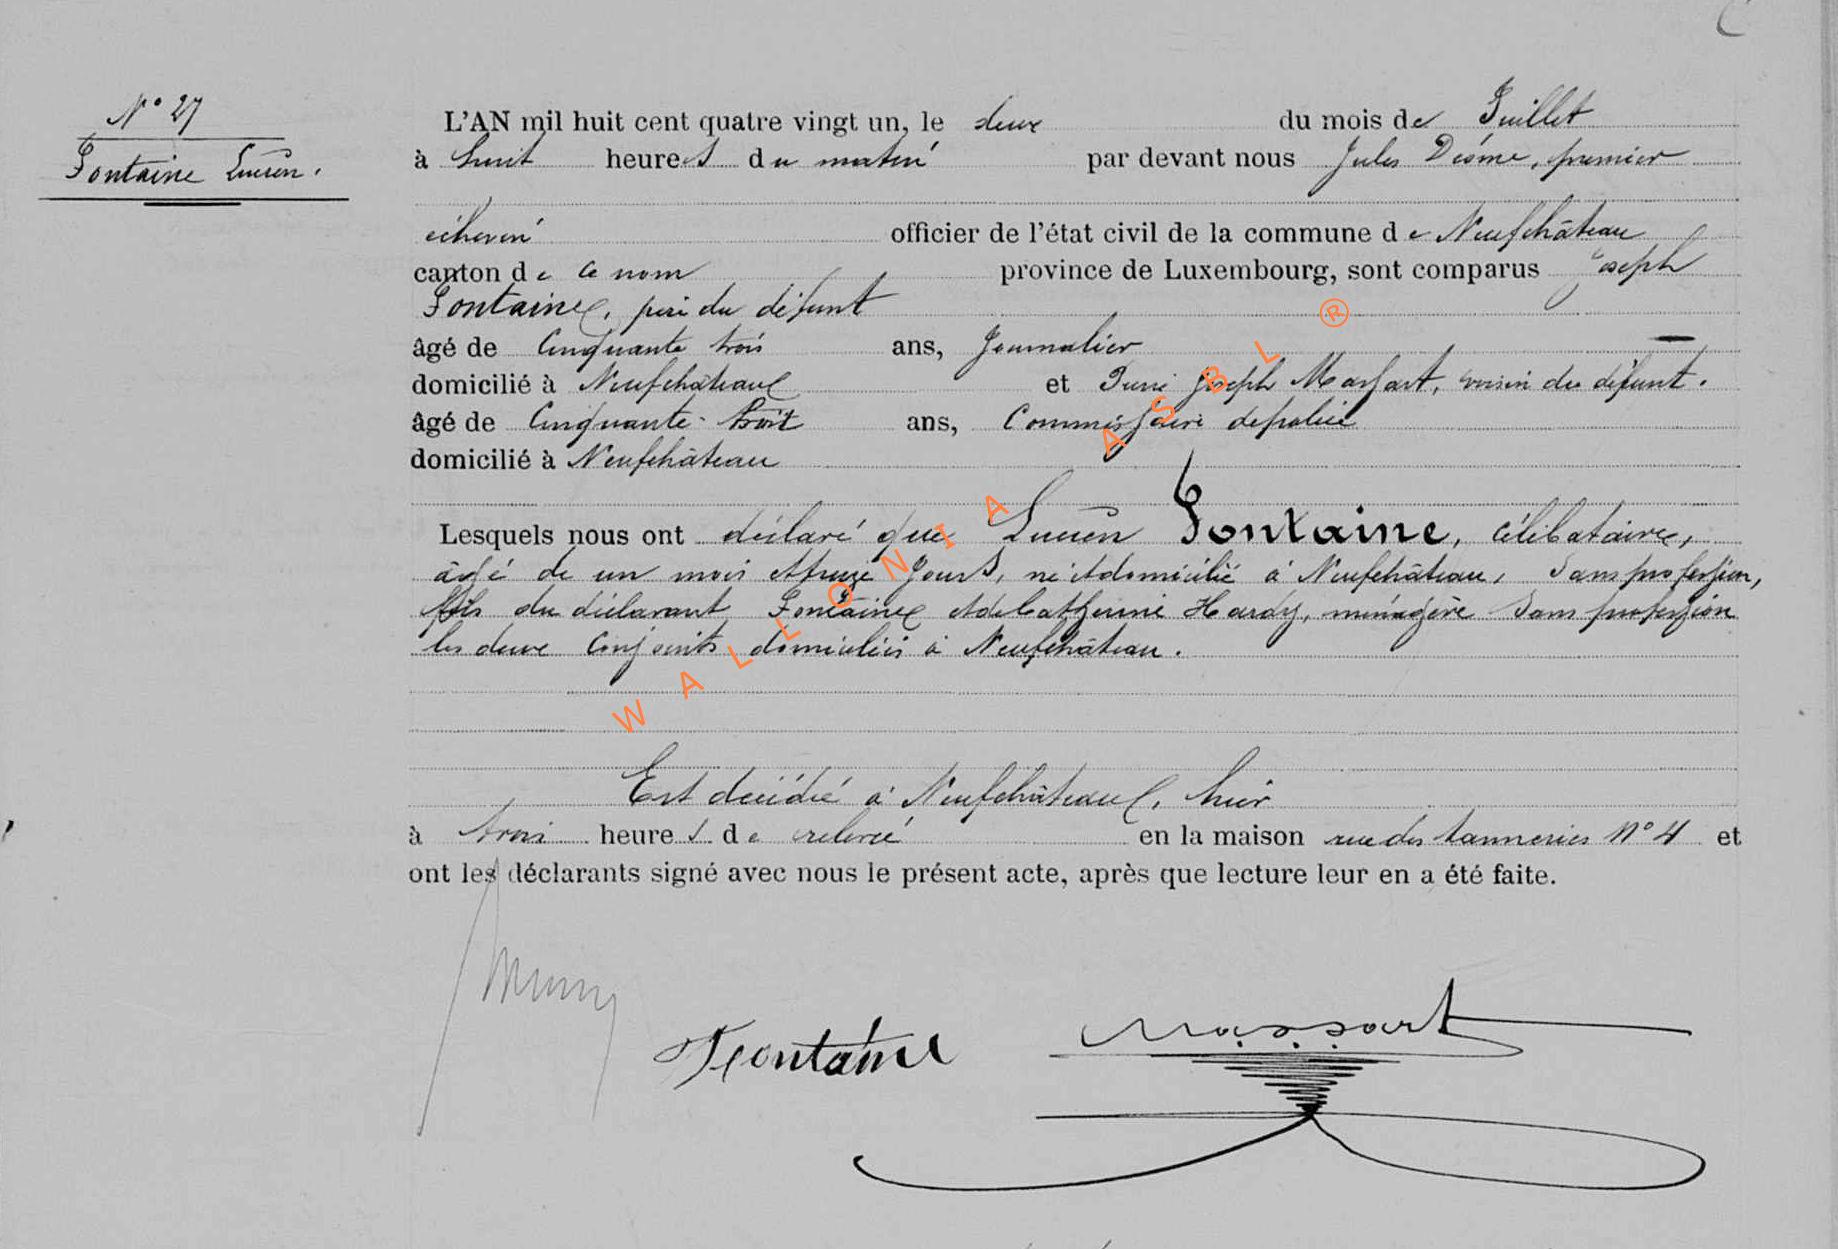 N° 27
Fontaine Lucien.
L'AN mil huit cent quatre vingt un, le deux du mois de Juillet
à huit heures du matin par devant nous Jules Désme, premier
échevin officier de l'état civil de la commune de Neufchâteau
canton de ce nom province de Luxembourg, sont comparus Joseph
Fontaine, père du défunt
âgé de Cinquante trois ans, Journalier
domicilié à Neufchâteau et Joseph Massart, voisin du défunt.
âgé de Cinquante ans, Commissaire de police
domicilié à Neufchâteau
Lesquels nous ont déclaré que Lucien Fontaine, célibataire,
âgé de un mois et jours, né et domicilié à Neufchâteau, Sans profession,
fils du déclarant Fontaine et de Catherine Hardy, ménagère Sans profession
les deux Conjoints domiciliés à Neufchâteau.
Est décédé à Neufchâteau, hier
à trois heures de relevée en la maison rue des tanneries N° 4 et
ont les déclarants signé avec nous le présent acte, après que lecture leur en a été faite.
Fontaine
Massart
WALLONIA ASBL ®